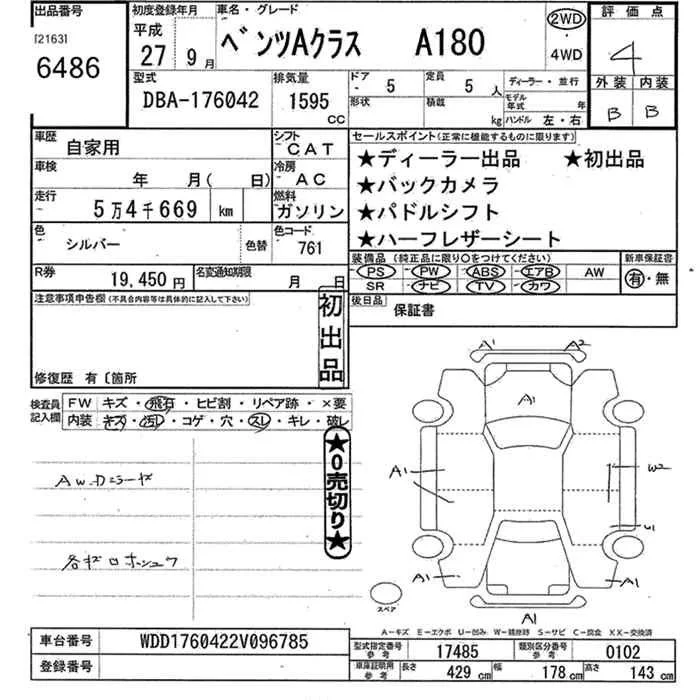 出品番号 初度登録年月 車名・グレード 2WD 評価点
[2163]
6486
平成
27 9月
ベンツAクラス A180
4WD
4
型式 排気量 ドア 5 定員 5人 ディーラー・並行 外装 内装
DBA-176042 1595 CC
形状 積載 kg モデル年式 年 B B
ハンドル 左・右
車歴 自家用 シフト CAT
セールスポイント(正常に機能するものに限ります)
★ディーラー出品 ★初出品
★バックカメラ
★パドルシフト
★ハーフレザーシート
車検 年 月( 日) 冷房 AC
走行 5万4千669 km 燃料 ガソリン
色 シルバー 色替 色コード 761
装備品 (純正品に限り○をつけてください) 新車保証書
PS PW ABS エアB AW 有・無
SR ナビ TV カワ
R券 19,450円 名変通知期限 月 日
後日品 保証書
注意事項申告欄(不具合内容等は具体的に記入して下さい)
初出品
修復歴 有 〔箇所
検査員記入欄
FW キズ・飛石・ヒビ割・リペア跡・×要
内装 キズ・汚レ・コゲ・穴・スレ・キレ・破レ
★0売切り★
A1 A2
A1
A1 W2
U1
A1 A1
A1
スペア
A-キズ E-エクボ U-凹み W-補修跡 S-サビ C-腐食 XX-交換済
車台番号 WDD1760422V096785
登録番号
型式指定番号 参考 17485 類別区分番号 参考 0102
車庫証明用 参考 長さ 429 cm 幅 178 cm 高さ 143 cm